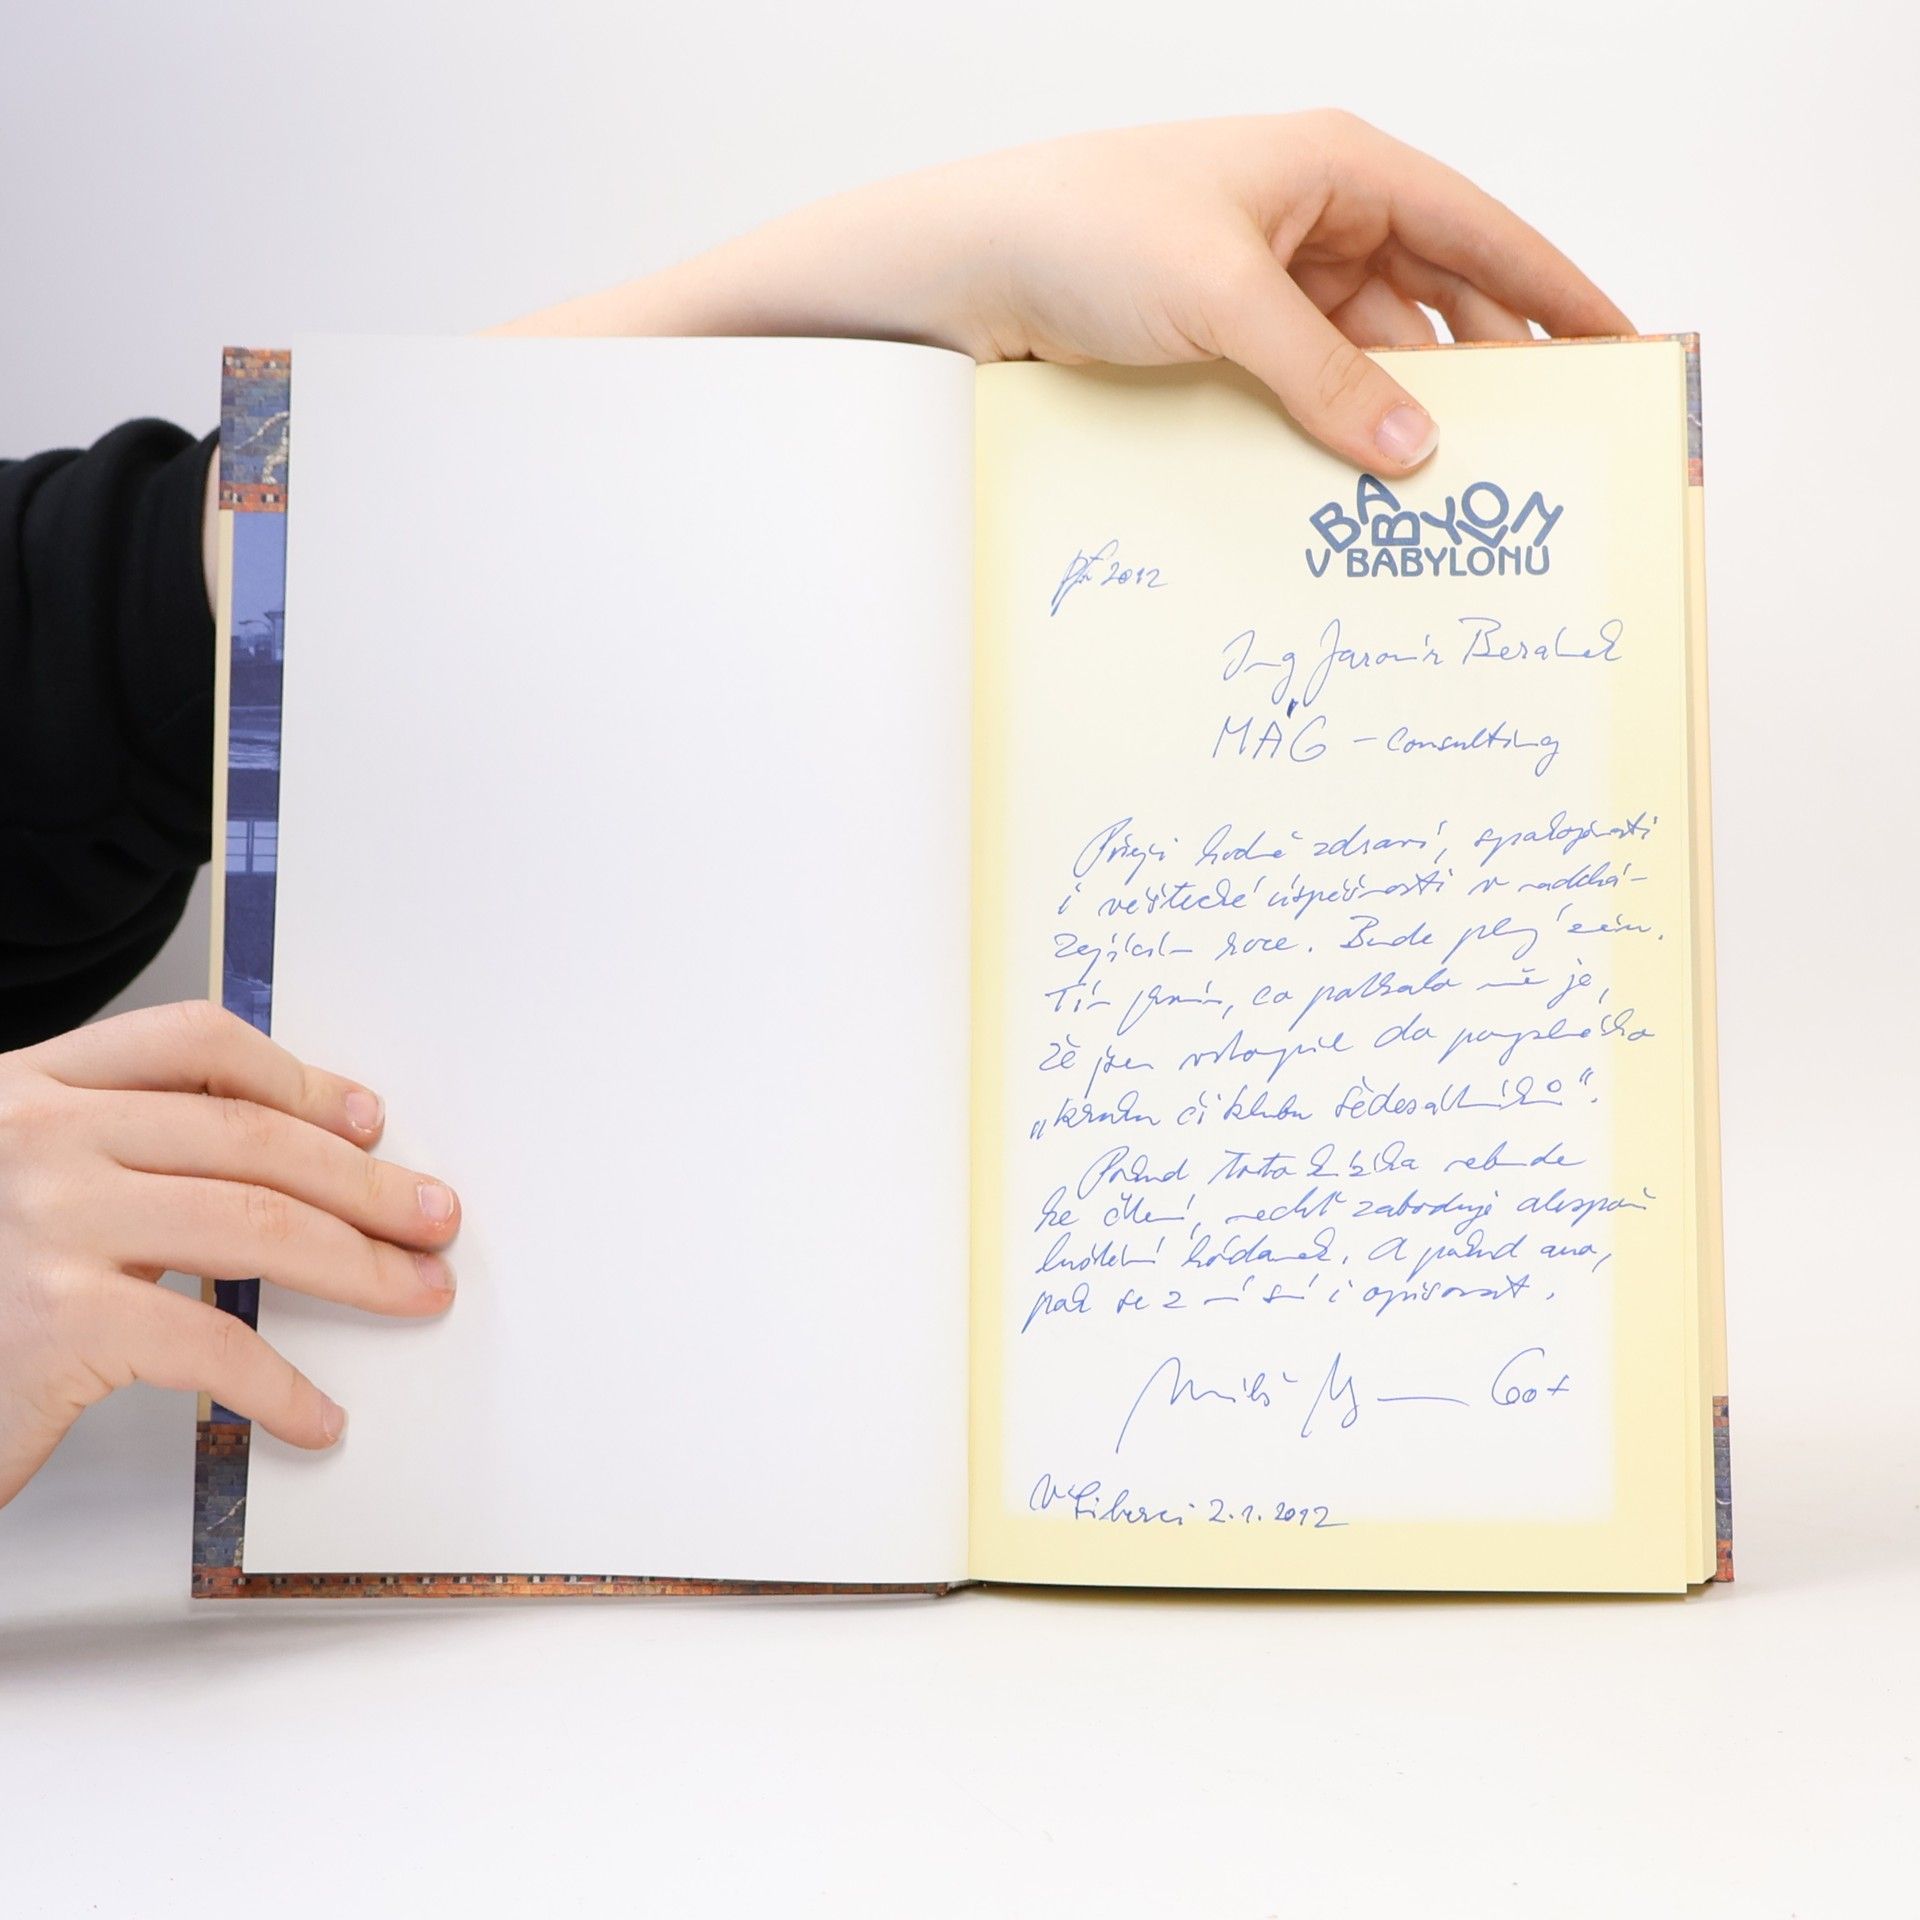 BABYLON
V BABYLONU
Pf 2012
Ing Jaromír Beránek
MAG - consulting
Přeji hodně zdraví, spokojenosti
i veškeré úspěšnosti v nadchá-
zejícím roce. Bude plný změn.
Tím prvním, co potkalo mě je,
že jsem vstoupil do pomyslného
„kruhu či klubu šedesátníků".
Pokud tato knížka nebude
ke čtení, nechť zaboduje alespoň
luštění hádanek. A pokud ano,
pak se z ní smí i opisovat.
Miloš 60+
V Liberci 2.1.2012